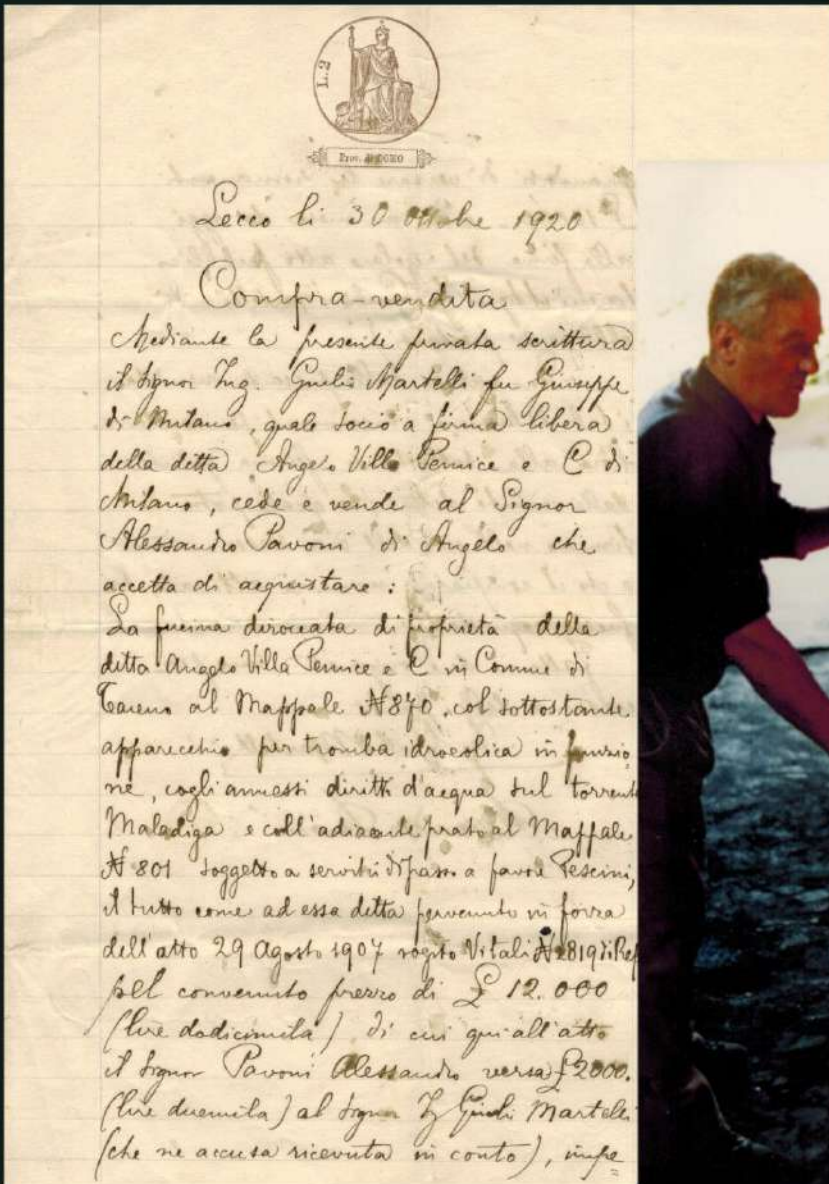 L. 2
Prov. di COMO
Lecco li 30 ottobre 1920
Compra-vendita
Mediante la presente privata scrittura
il Signor Ing. Giulio Martelli fu Giuseppe
di Milano, quale socio a firma libera
della ditta Angelo Villa Pernice e C di
Milano, cede e vende al Signor
Alessandro Pavoni di Angelo che
accetta di acquistare:
La fucina diroccata di proprietà della
ditta Angelo Villa Pernice e C in Comune di
al Mappale N 870, col sottostante
apparecchio per tromba idroeolica in funzio
ne, cogli annessi diritti d'acqua sul torrente
Maladiga e coll'adiacente prato al Mappale
N 801 soggetto a servitù di passo a favore Pescini,
il tutto come ad essa ditta pervenuto in forza
dell'atto 29 Agosto 1907 rogito Vitali N 2819 di Rep
pel convenuto prezzo di £ 12.000
(lire dodicimila) di cui qui all'atto
il Signor Pavoni Alessandro versa £ 2000.
(lire duemila) al Signor Giulio Martelli
(che ne accusa ricevuta in conto), impe=